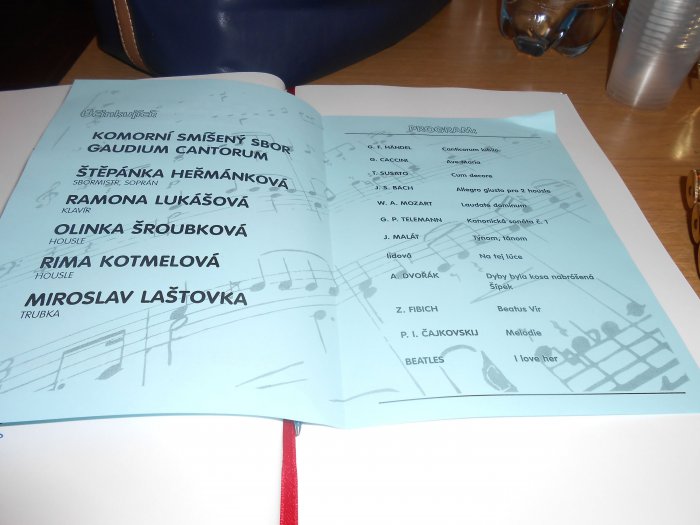 Účinkující:
KOMORNÍ SMÍŠENÝ SBOR
GAUDIUM CANTORUM
ŠTĚPÁNKA HEŘMÁNKOVÁ
SBORMISTR, SOPRÁN
RAMONA LUKÁŠOVÁ
KLAVÍR
OLINKA ŠROUBKOVÁ
HOUSLE
RIMA KOTMELOVÁ
HOUSLE
MIROSLAV LAŠTOVKA
TRUBKA
PROGRAM:
G. F. HÄNDEL Canticorum iubilo
G. CACCINI Ave Maria
T. SUSATO Cum decore
J. S. BACH Allegro giusto pro 2 housle
W. A. MOZART Laudate dominum
G. P. TELEMANN Kanonická sonáta č. 1
J. MALÁT Týnom, tánom
lidová Na tej lúce
A. DVOŘÁK Dyby byla kosa nabróšená
Šípek
Z. FIBICH Beatus Vir
P. I. ČAJKOVSKIJ Melodie
BEATLES I love her